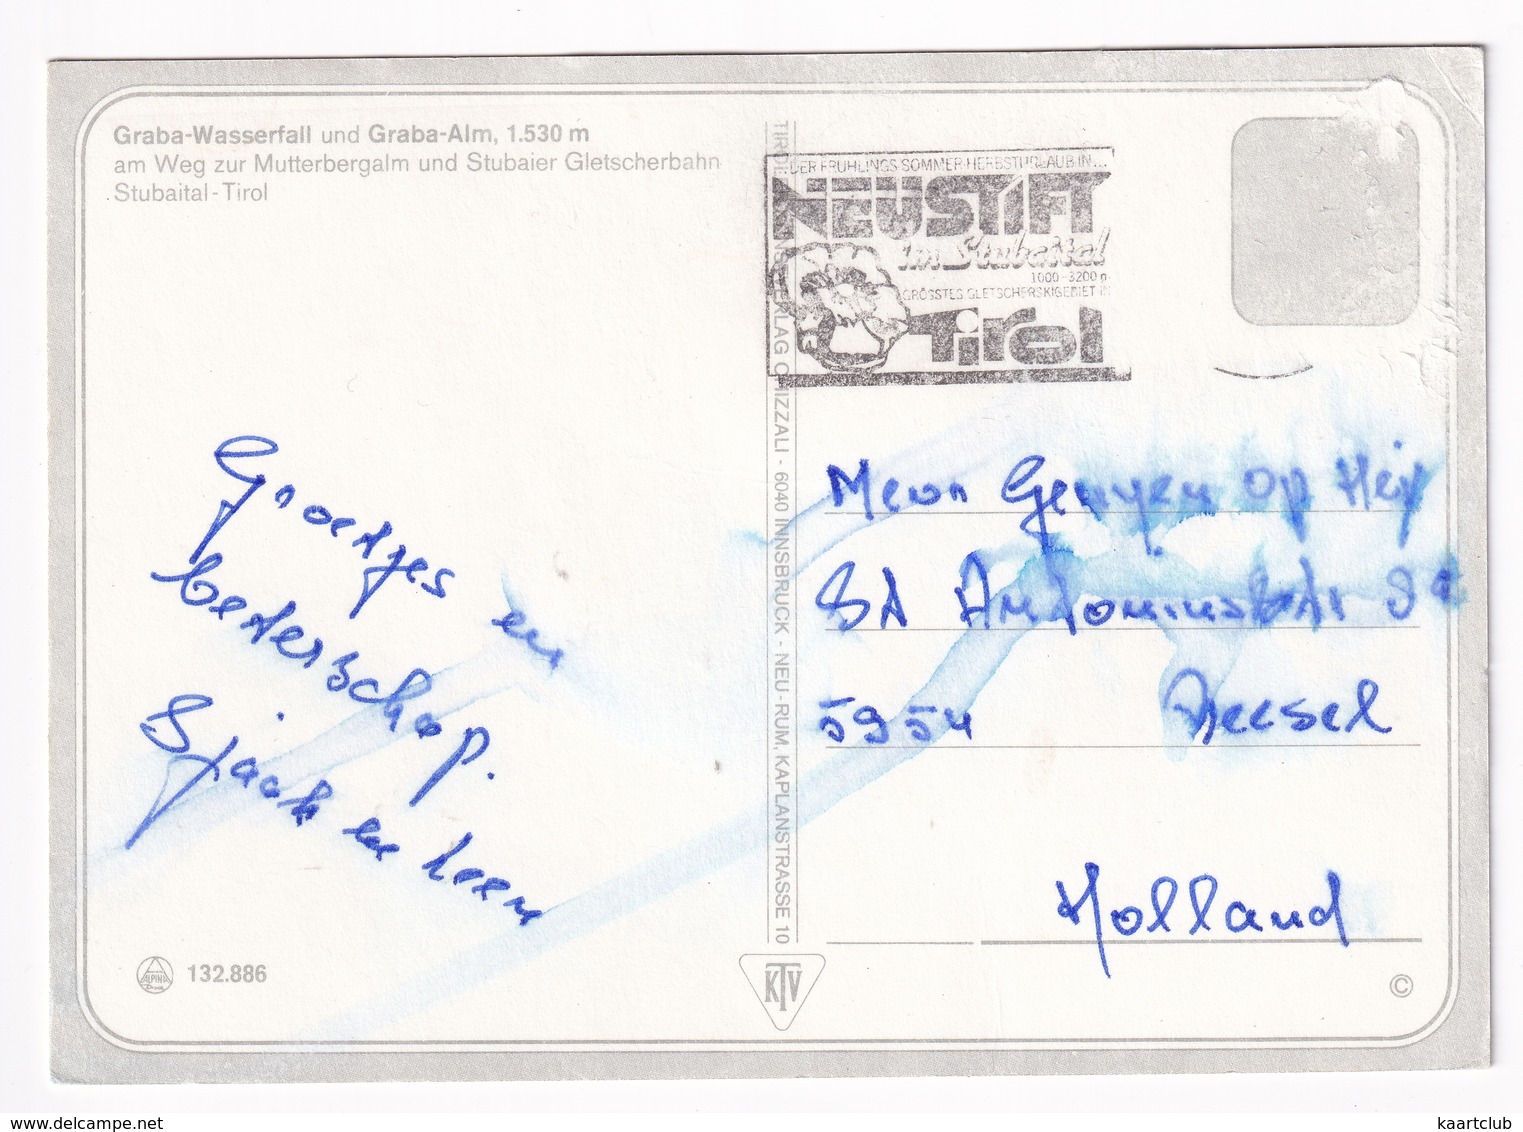 Graba-Wasserfall und Graba-Alm, 1.530 m
am Weg zur Mutterbergalm und Stubaier Gletscherbahn
Stubaital-Tirol
DER FRÜHLINGS SOMMER HERBSTURLAUB IN...
NEUSTIFT
im Stubaital
1000-3200 m
GRÖSSTES GLETSCHERSKIGEBIET IN
Tirol
CHIZZALI - 6040 INNSBRUCK - NEU-RUM, KAPLANSTRASSE 10
Groetjes en
beterschap.
Sjack en
op
St
5954 Beesel
Holland
ALPINA
132.886
KTV
©
kaartclub